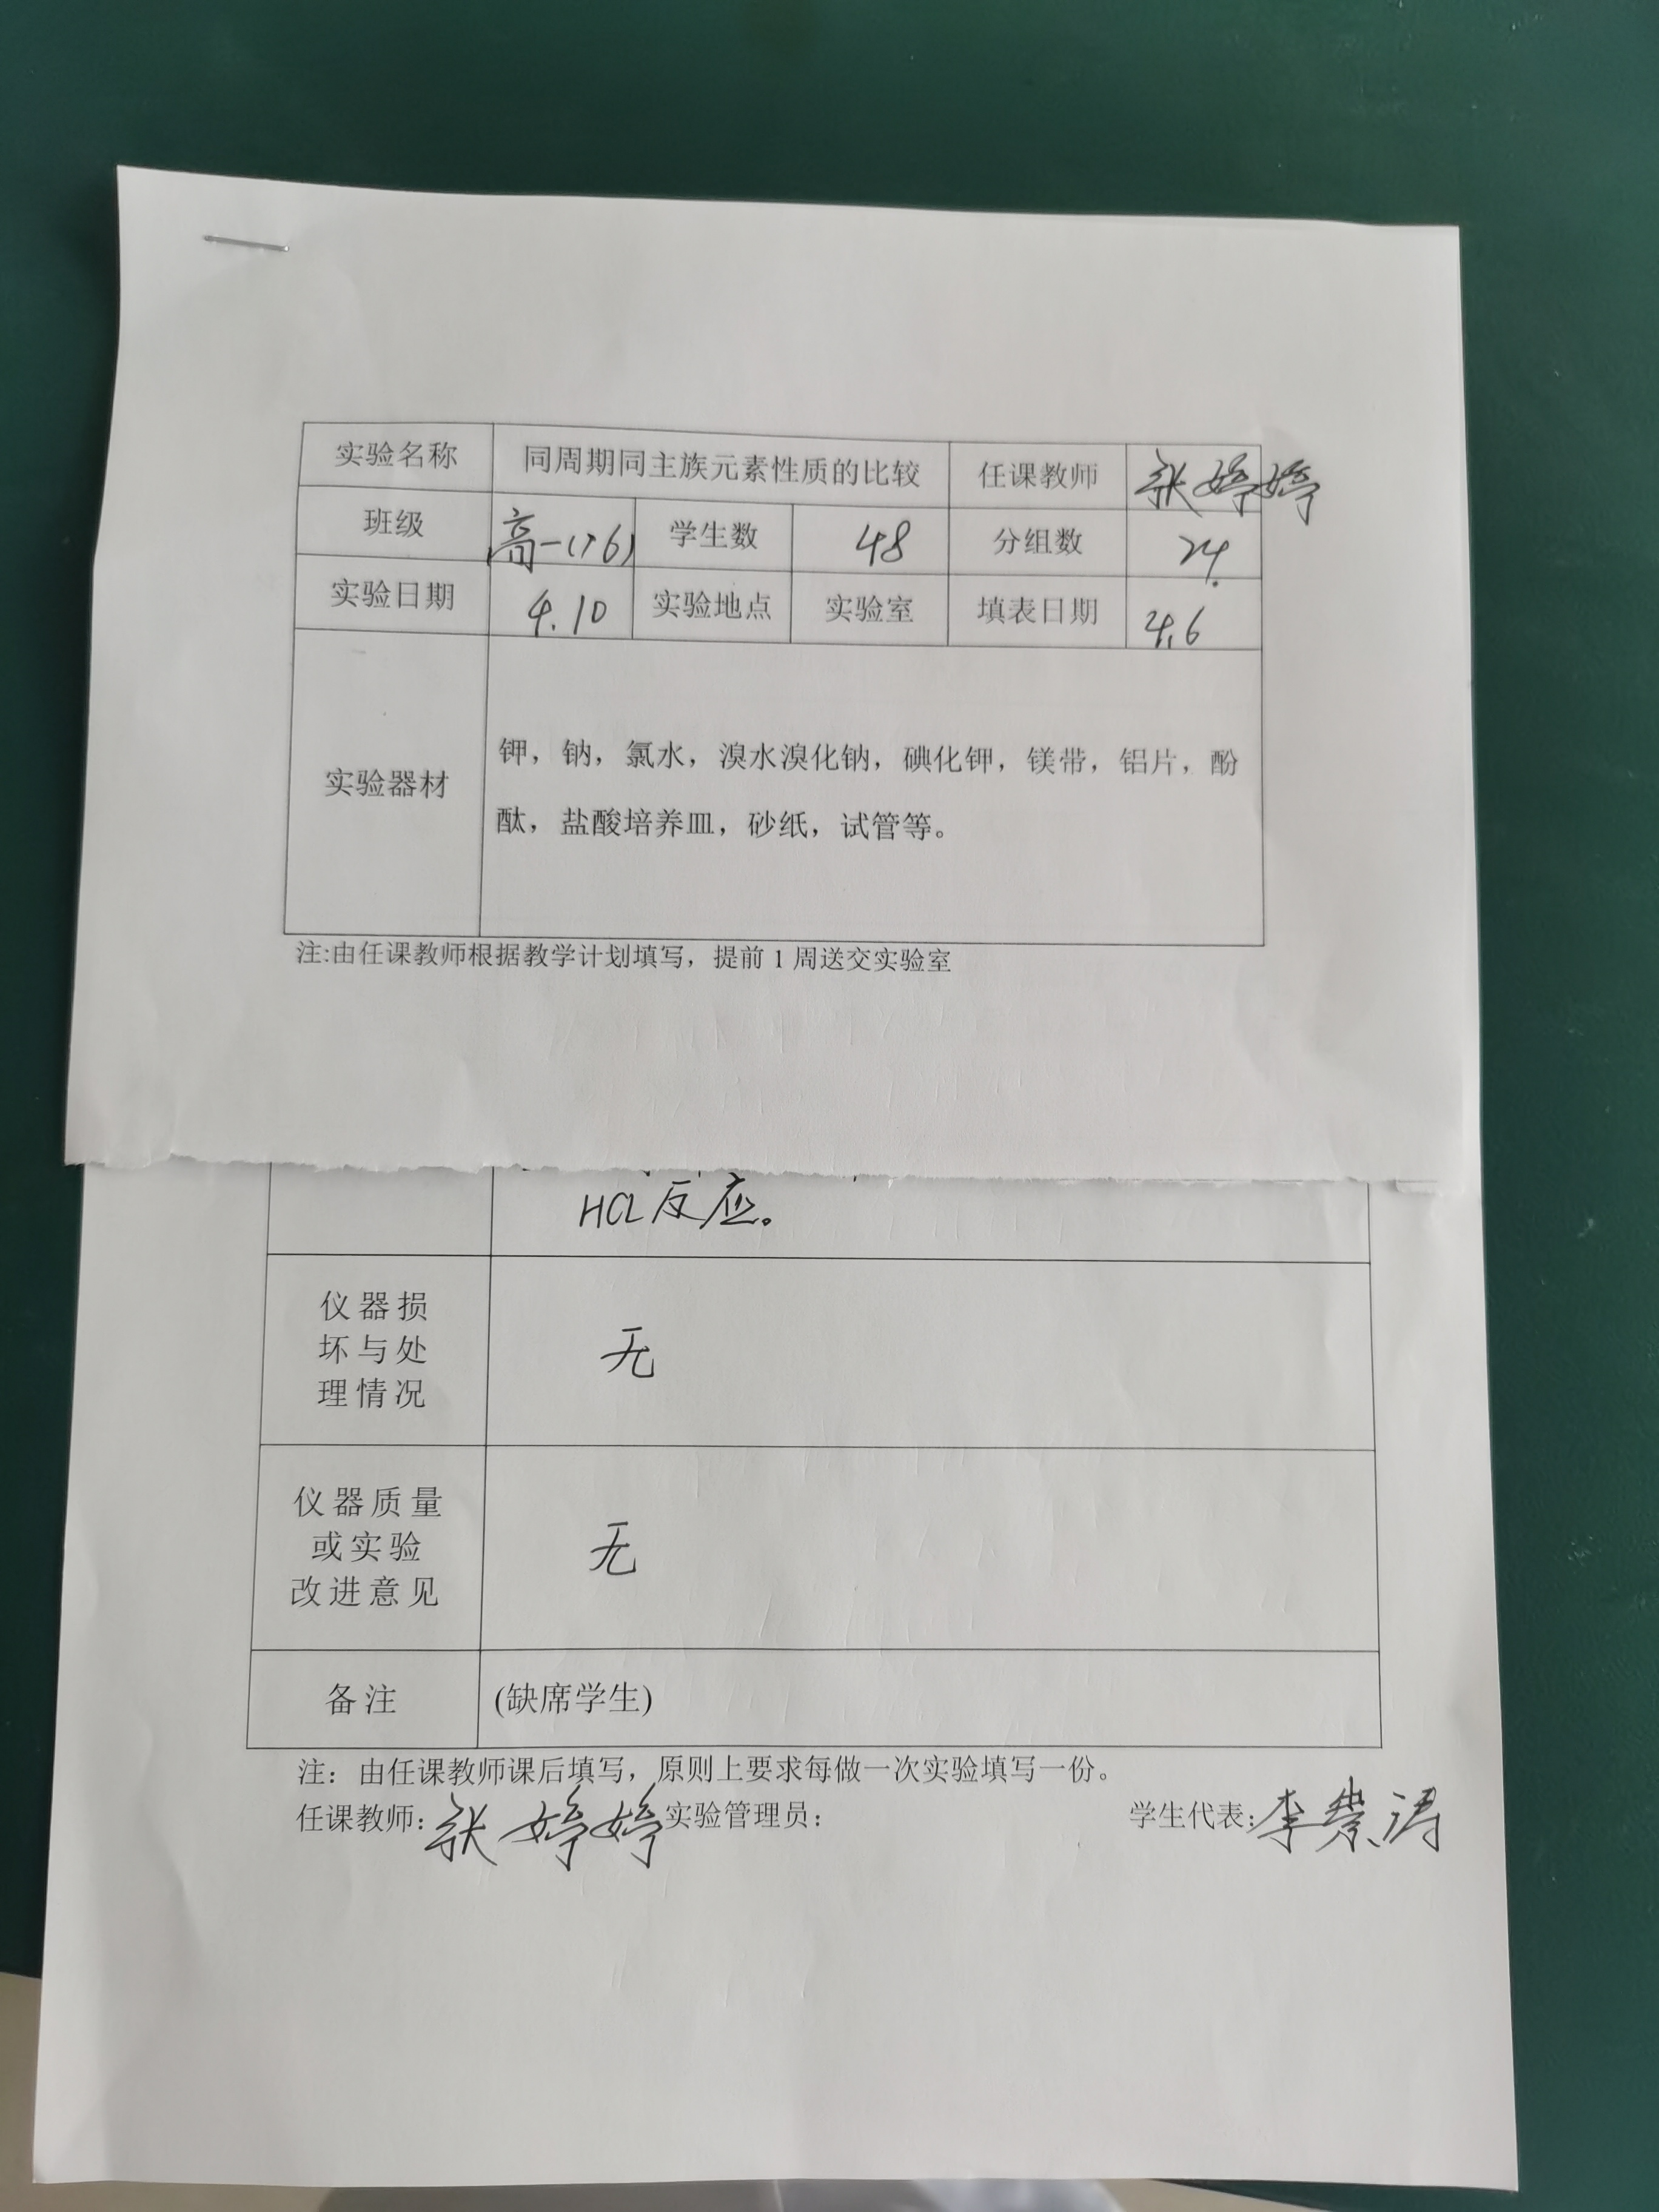 实验名称 同周期同主族元素性质的比较 任课教师 张婷婷
班级 高一(16) 学生数 48 分组数 24
实验日期 4.10 实验地点 实验室 填表日期 4.6
实验器材
钾，钠，氯水，溴水溴化钠，碘化钾，镁带，铝片，酚
酞，盐酸培养皿，砂纸，试管等。
注:由任课教师根据教学计划填写，提前 1 周送交实验室
HCl反应。
仪器损
坏与处
理情况
无
仪器质量
或实验
改进意见
无
备注 (缺席学生)
注：由任课教师课后填写，原则上要求每做一次实验填写一份。
任课教师：张婷婷 实验管理员： 学生代表：李崇涛